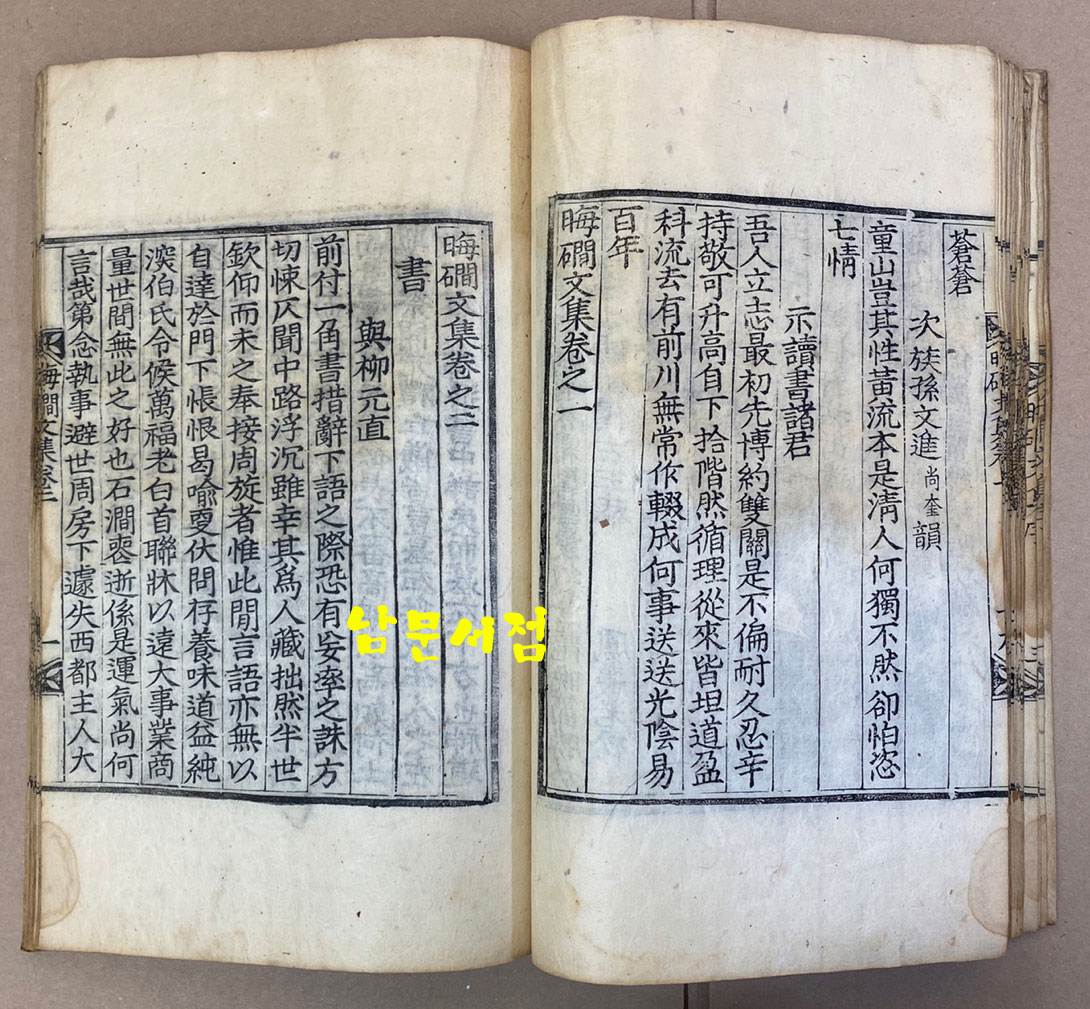 蒼蒼
次族孫文進尚奎韻
童山豈其性黃流本是淸人何獨不然卻怕恣
七情
示讀書諸君
吾人立志最初先博約雙關是不偏耐久忍辛
持敬可升高自下拾階然循理從來皆坦道盈
科流去有前川無常作輟成何事送送光陰易
百年
晦磵文集卷之一
晦磵文集卷之二
書
與柳元直
前付一角書措辭下語之際恐有妄率之誅方
切悚仄聞中路浮沉雖幸其爲人藏拙然半世
欽仰而未之奉接周旋者惟此間言語亦無以
自達於門下悵恨曷喩更伏問存養味道益純
深伯氏令候萬福老白首聯牀以遠大事業商
量世間無此之好也石澗喪逝係是運氣尚何
言哉第念執事避世周房下遽失西都主人大
晦磵文集卷二
一
남문서점